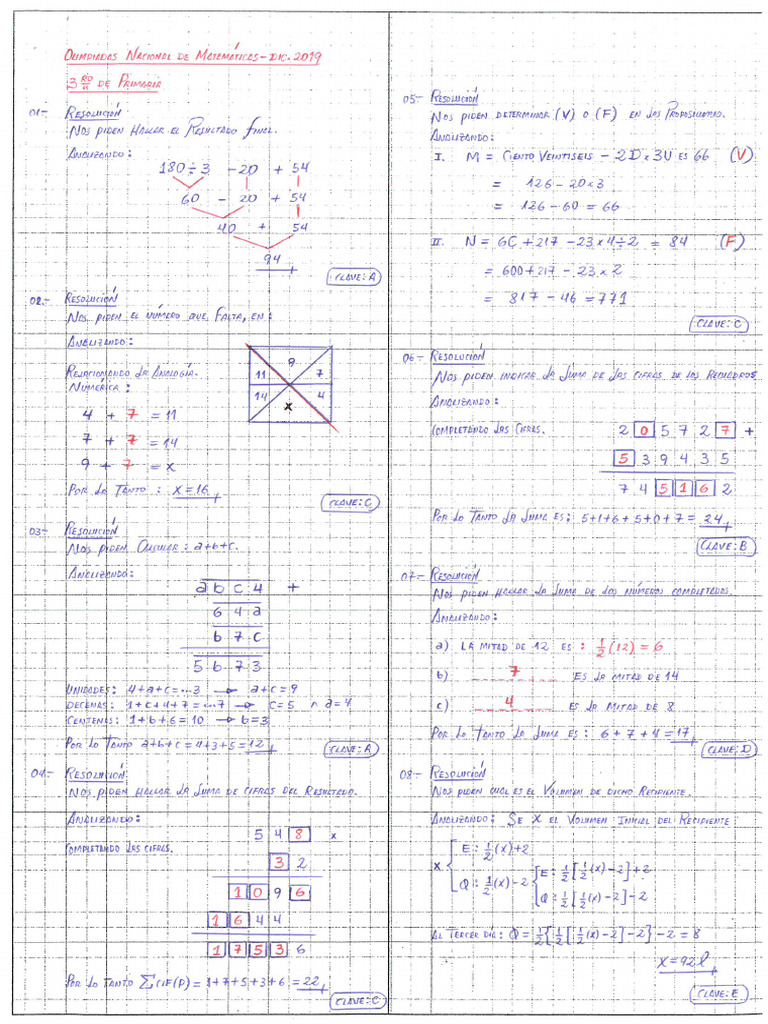 OLIMPIADAS NACIONAL DE MATEMÁTICAS-DIC. 2019
3RO DE PRIMARIA
01.- RESOLUCIÓN
NOS PIDEN HALLAR EL RESULTADO FINAL.
ANALIZANDO:
180 ÷ 3 - 20 + 54
60 - 20 + 54
40 + 54
94
CLAVE: A
02.- RESOLUCIÓN
NOS PIDEN EL NÚMERO QUE FALTA, EN:
ANALIZANDO:
RELACIONANDO LA ANALOGÍA.
NUMÉRICA:
9
11 7
14 4
x
4 + 7 = 11
7 + 7 = 14
9 + 7 = x
POR LO TANTO: x = 16
CLAVE: C
03.- RESOLUCIÓN
NOS PIDEN CALCULAR: a+b+c.
ANALIZANDO:
a b c 4 +
6 4 a
b 7 c
5 b 7 3
UNIDADES: 4+a+c=...3 → a+c=9
DECENAS: 1+c+4+7=...7 → c=5 ∧ a=4
CENTENAS: 1+b+6=10 → b=3
POR LO TANTO a+b+c=4+3+5=12
CLAVE: A
04.- RESOLUCIÓN
NOS PIDEN HALLAR LA SUMA DE CIFRAS DEL RESULTADO.
ANALIZANDO:
COMPLETANDO LAS CIFRAS.
5 4 8 x
3 2
1 0 9 6
1 6 4 4
1 7 5 3 6
POR LO TANTO ∑CIF(P)=1+7+5+3+6=22
CLAVE: C
05.- RESOLUCIÓN
NOS PIDEN DETERMINAR (V) O (F) EN LAS PROPOSICIONES.
ANALIZANDO:
I. M = CIENTO VEINTISEIS - 2D x 3U ES 66 (V)
= 126 - 20 x 3
= 126 - 60 = 66
II. N = 6C + 217 - 23 x 4 ÷ 2 = 84 (F)
= 600 + 217 - 23 x 2
= 817 - 46 = 771
CLAVE: C
06.- RESOLUCIÓN
NOS PIDEN INDICAR LA SUMA DE LAS CIFRAS DE LOS RECUADROS
ANALIZANDO:
COMPLETANDO LAS CIFRAS.
2 0 5 7 2 7 +
5 3 9 4 3 5
7 4 5 1 6 2
POR LO TANTO LA SUMA ES: 5+1+6+5+0+7=24
CLAVE: B
07.- RESOLUCIÓN
NOS PIDEN HALLAR LA SUMA DE LOS NÚMEROS COMPLETADOS.
ANALIZANDO:
a) LA MITAD DE 12 ES: 1/2 (12) = 6
b) 7 ES LA MITAD DE 14
c) 4 ES LA MITAD DE 8
POR LO TANTO LA SUMA ES: 6+7+4=17
CLAVE: D
08.- RESOLUCIÓN
NOS PIDEN CUAL ES EL VOLUMEN DE DICHO RECIPIENTE.
ANALIZANDO: SE X EL VOLUMEN INICIAL DEL RECIPIENTE
x { E: 1/2(x)+2
Q: 1/2(x)-2 { E: 1/2[1/2(x)-2]+2
Q: 1/2[1/2(x)-2]-2
AL TERCER DÍA: Q = 1/2{1/2[1/2(x)-2]-2}-2 = 8
x = 92 l
CLAVE: E